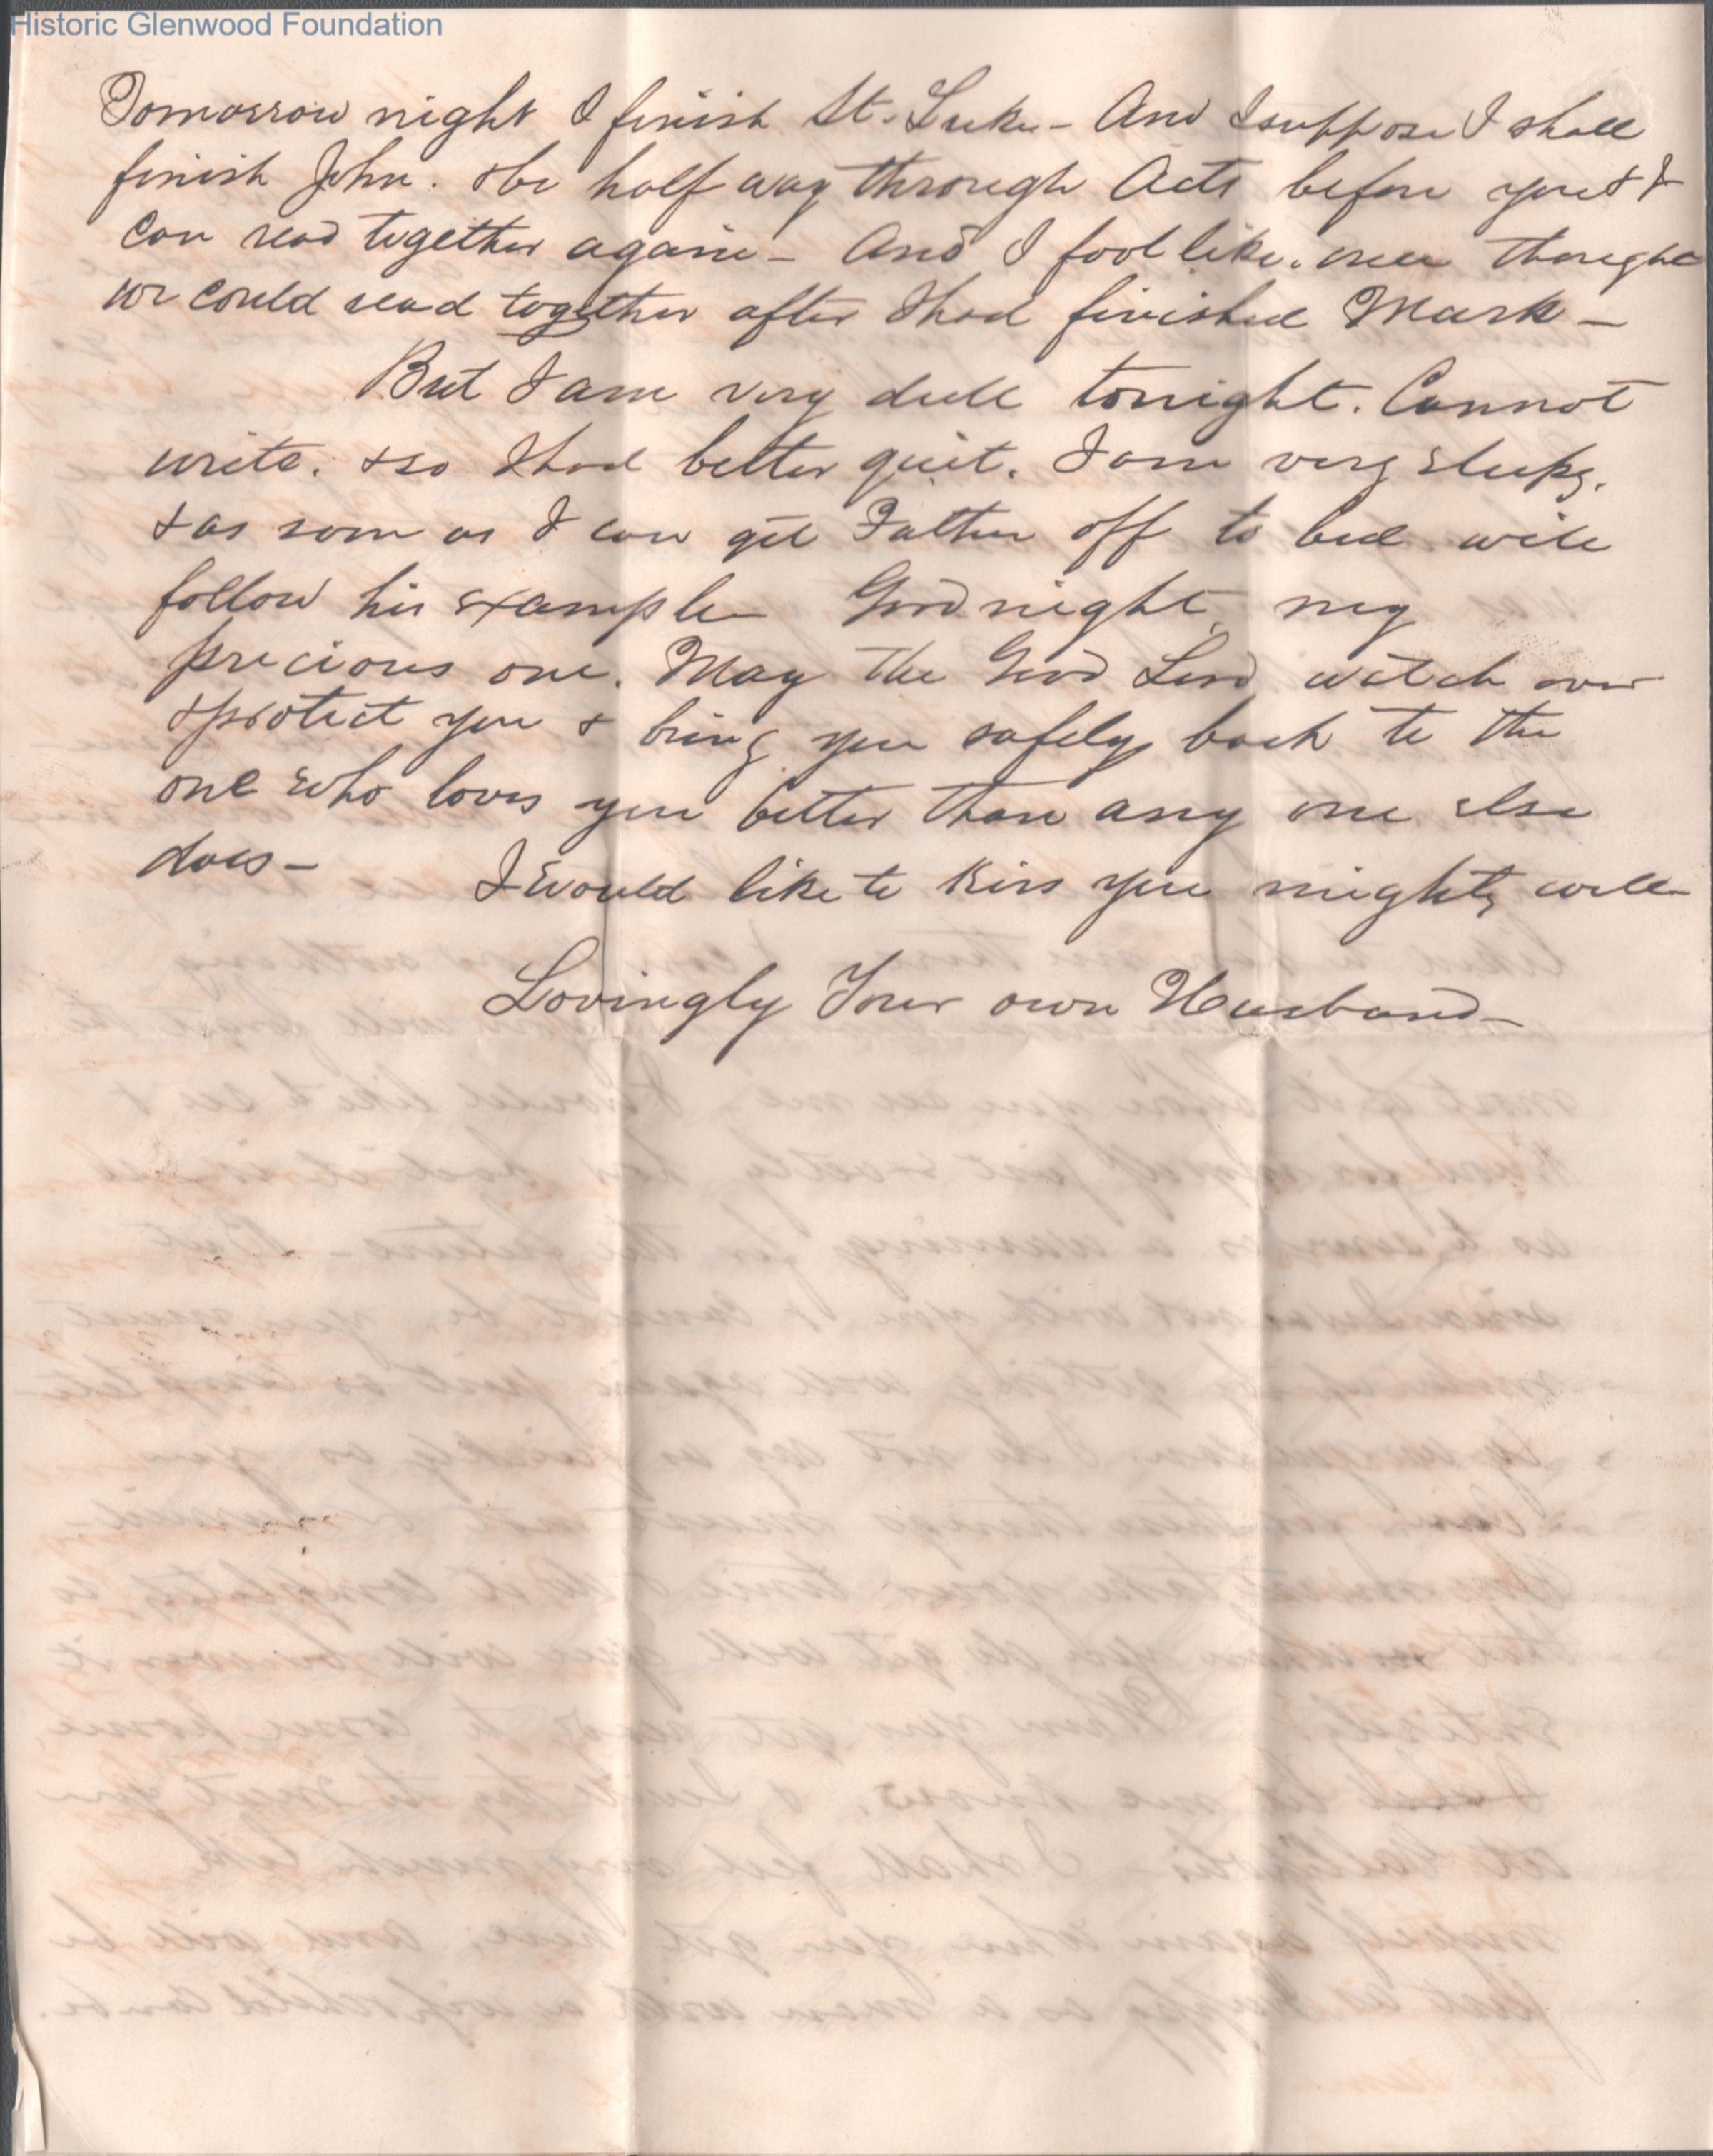 Historic Glenwood Foundation
Tomorrow night I finish St. Luke - And I suppose I shall
finish John. & be half way through Acts before you & I
can read together again - And I fool like. once thought
we could read together after I had finished Mark -
But I am very dull tonight. Cannot
write. & so I had better quit. I am very sleepy.
& as soon as I can get Father off to bed will
follow his example Good night, my
precious one. May the Good Lord watch over
& protect you & bring you safely back to the
one who loves you better than any one else
does -
I would like to kiss you mighty well
Lovingly Your own Husband -